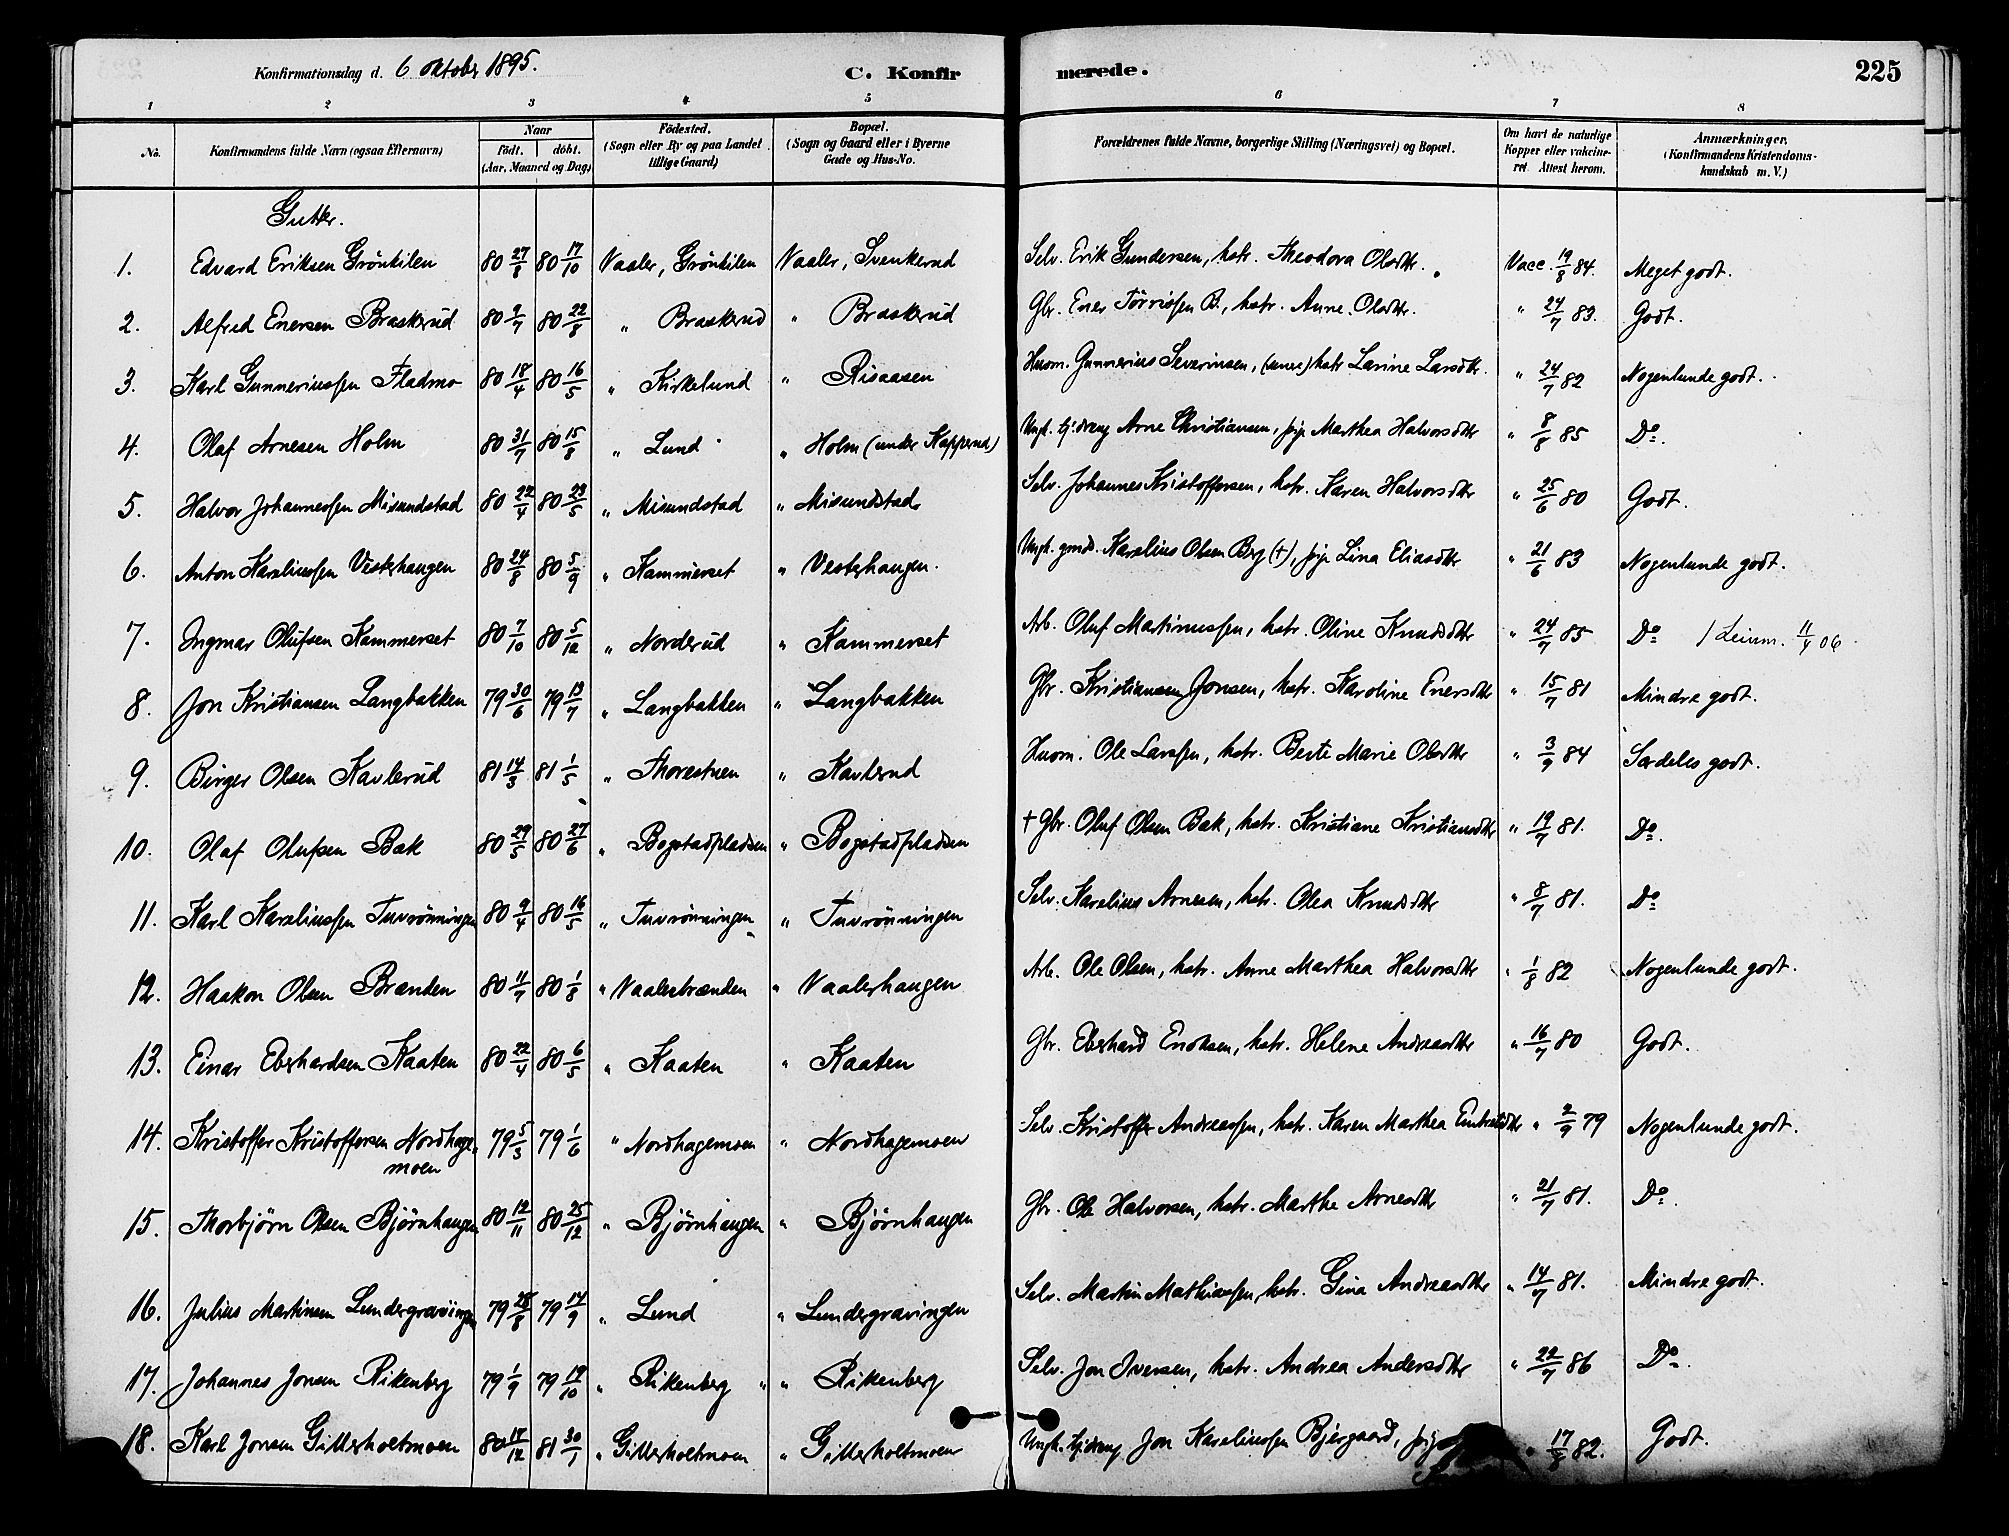 Konfirmationsdag d. 6 oktober 1895.
C. Konfirmerede.
225
1 2 3 4 5 6 7 8
No. Konfirmandens fulde Navn (ogsaa Efternavn) Naar født. døbt. (Aar, Maaned og Dag) Fødested. (Sogn eller By og paa Landet tillige Gaard) Bopæl. (Sogn og Gaard eller i Byerne Gade og Hus-No. Forældrenes fulde Navne, borgerlige Stilling (Næringsvei) og Bopæl. Om havt de naturlige Kopper eller vakcineret. Attest herom. Anmærkninger. (Konfirmandens Kristendomskundskab m. V.)
Gutter.
1. Edvard Eriksen Grönkilen 80 27/8 80 17/10 Vaaler, Grönkilen Vaaler, Svenkerud Selv. Erik Gundersen, hstr. Theodora Olsdtr. Vacc. 19/8 84. Meget godt.
2. Alfred Enersen Braskerud 80 2/7 80 22/8 " Braskerud " Braskerud Gbr. Ener Törrissen B., hstr. Anne Olsdtr. " 24/7 83. Godt.
3. Karl Gunneriussen Fladmo 80 18/4 80 16/5 " Kirkelund " Risaasen Husm. Gunnerius Severinsen, hstr Larine Larsdtr. " 24/7 82 Nogenlunde godt.
4. Olaf Arnesen Holm 80 31/7 80 15/8 " Lund " Holm (under Kapperud) Ungk. tj.dreng Arne Christiansen, pige Marthea Halvorsdtr " 8/8 85 Do.
5. Halvor Johannessen Misundstad 80 22/4 80 23/5 " Misundstad " Misundstad Selv. Johannes Kristoffersen, hstr. Karen Halvorsdtr " 25/6 80 Godt.
6. Anton Karelinssen Vesterhaugen 80 24/8 80 5/9 " Kammerset " Vesterhaugen. Ungk. gmds. Karelius Olsen Berg (+), pige Lina Eliasdtr " 21/6 83 Nogenlunde godt.
7. Ingmar Olufsen Kammerset 80 7/10 80 5/12 " Norderud " Kammerset Arb. Oluf Martinussen, hstr. Oline Knudsdtr " 24/7 85 Do /Leirm. 11/4 06
8. Jon Kristiansen Langbakken 79 30/6 79 13/7 " Langbakken " Langbakken Gbr. Kristiansen Jonsen, hstr. Karoline Enersdtr " 15/7 81 Mindre godt.
9. Birger Olsen Kavlerud 81 14/3 81 1/5 " Thorestuen " Kavlerud Husm. Ole Larssen, hstr. Berte Marie Olsdtr " 3/9 84 Særdeles godt.
10. Olaf Olufsen Bak 80 29/5 80 27/6 " Bogstadpladsen " Bogstadpladsen + Gbr. Oluf Olsen Bak, hstr. Kristiane Kristiansdtr " 19/7 81. Do.
11. Karl Kareliussen Tuvrönningen 80 9/4 80 16/5 " Tuvrönningen " Tuvrönningen Selv. Karelius Arnesen, hstr. Olea Knudsdtr " 8/7 81. Do
12. Haakon Olsen Brænden 80 11/7 80 1/8 " Vaalerbrænden " Vaalerhaugen Arb. Ole Olsen, hstr. Anne Marthea Halvorsdtr " 1/8 82 Nogenlunde godt.
13. Einar Eberhardsen Kaaten 80 22/4 80 6/5 " Kaaten " Kaaten Gbr. Eberhard Enoksen, hstr. Helene Andreasdtr " 16/7 80 Godt.
14. Kristoffer Kristoffersen Nordhagemoen 79 5/3 79 1/6 " Nordhagemoen " Nordhagemoen Selv. Kristoffer Andreassen, hstr. Karen Marthea Embretsdtr " 2/9 79 Nogenlunde godt.
15. Thorbjörn Olsen Bjørnhaugen 80 12/11 80 25/12 " Bjørnhaugen " Bjørnhaugen Gbr. Ole Halvorsen, hstr. Marthe Arnesdtr " 21/7 81. Do.
16. Julius Martinsen Lundergravingen 79 25/8 79 14/9 " Lund " Lundergravingen Selv. Martin Mathiassen, hstr. Gina Andreasdtr " 14/7 81. Mindre godt.
17. Johannes Jonsen Rikenberg 79 1/9 79 19/10 " Rikenberg " " Rikenberg Selv. Jon Iversen, hstr. Andrea Andersdtr " 22/7 86 Do.
18. Karl Jonsen Gitterholtmoen 80 17/12 81 30/1 " Gitterholtmoen " Gitterholtmoen Ungk. tj.dreng Jon Kareliussen Bjergaard, pige " 17/8 82. Godt.